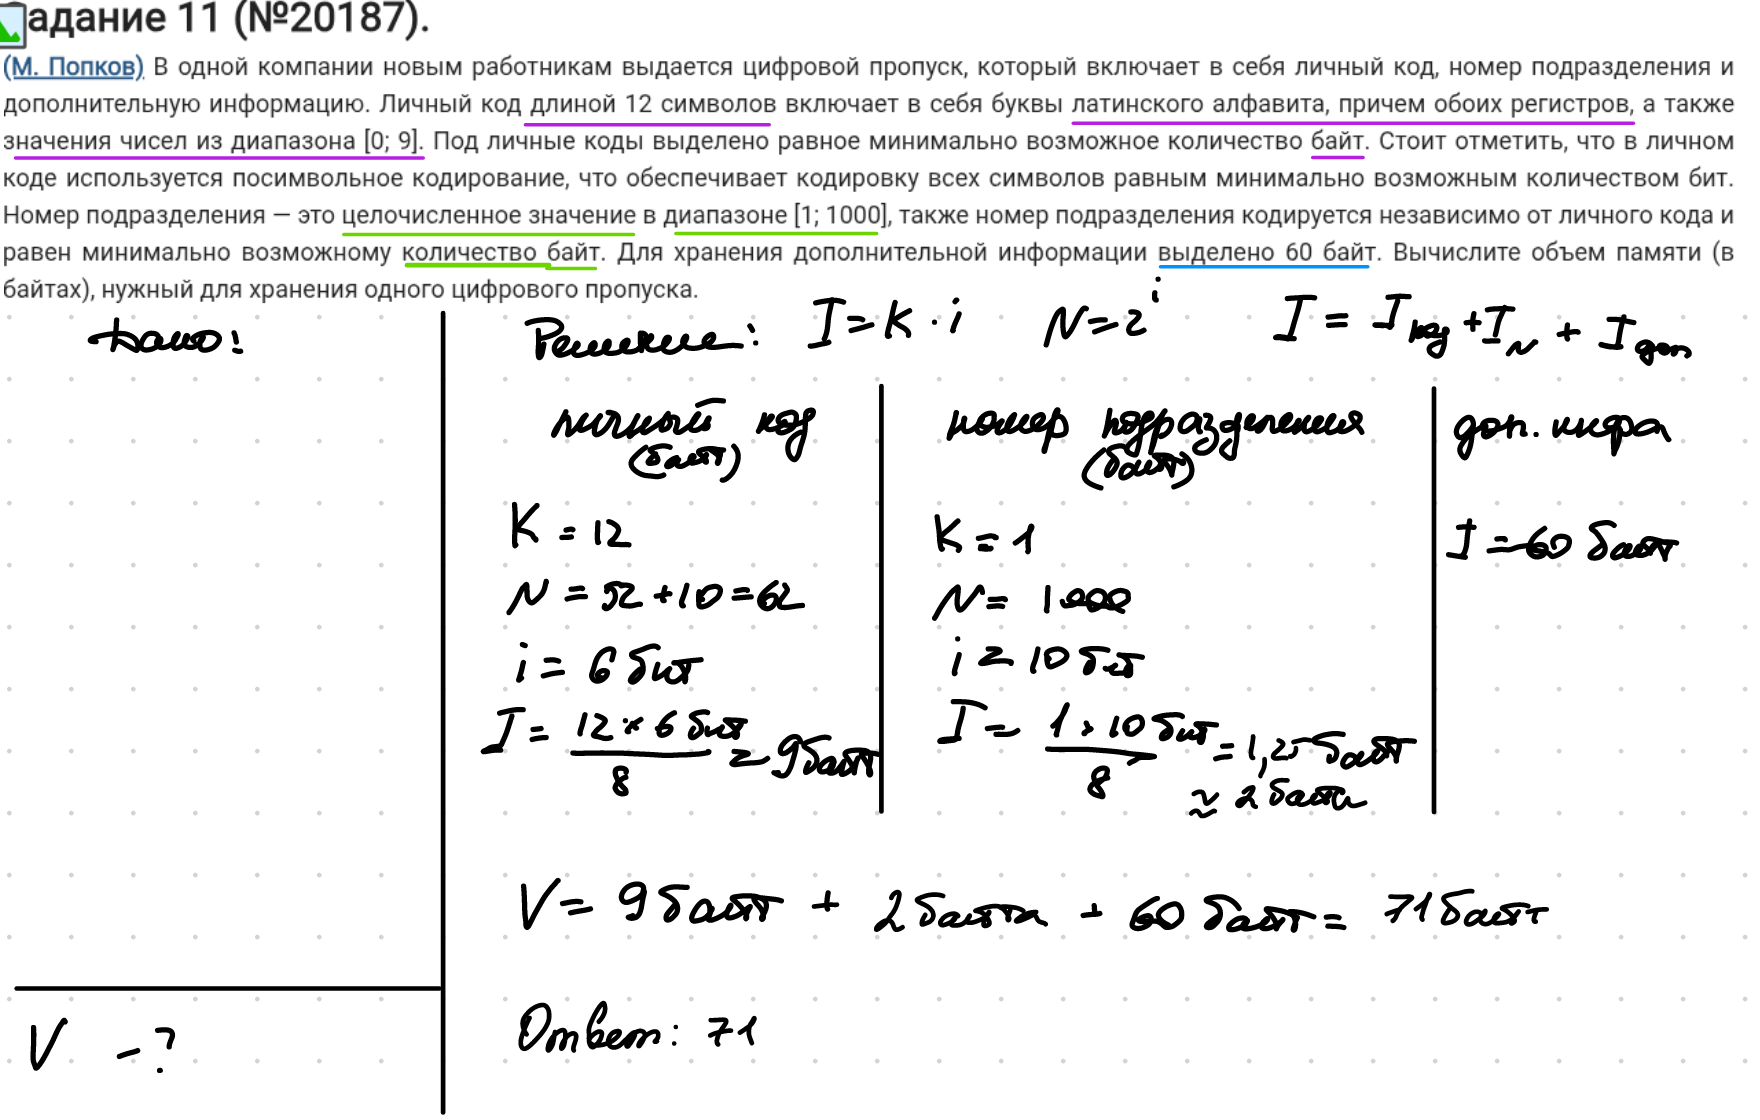 адание 11 (№20187).
(М. Попков) В одной компании новым работникам выдается цифровой пропуск, который включает в себя личный код, номер подразделения и
дополнительную информацию. Личный код длиной 12 символов включает в себя буквы латинского алфавита, причем обоих регистров, а также
значения чисел из диапазона [0; 9]. Под личные коды выделено равное минимально возможное количество байт. Стоит отметить, что в личном
коде используется посимвольное кодирование, что обеспечивает кодировку всех символов равным минимально возможным количеством бит.
Номер подразделения — это целочисленное значение в диапазоне [1; 1000], также номер подразделения кодируется независимо от личного кода и
равен минимально возможному количество байт. Для хранения дополнительной информации выделено 60 байт. Вычислите объем памяти (в
байтах), нужный для хранения одного цифрового пропуска.
Дано:
Решение: I = K · i N = 2^i I = I код + I N + I доп
личный код
(байт)
K = 12
N = 52 + 10 = 62
i = 6 бит
I = 12 * 6 бит / 8 = 9 байт
номер подразделения
(байт)
K = 1
N = 1000
i = 10 бит
I = 1 * 10 бит / 8 = 1,25 байт
≈ 2 байта
доп. инфа
I = 60 байт
V = 9 байт + 2 байта + 60 байт = 71 байт
V - ?
Ответ: 71